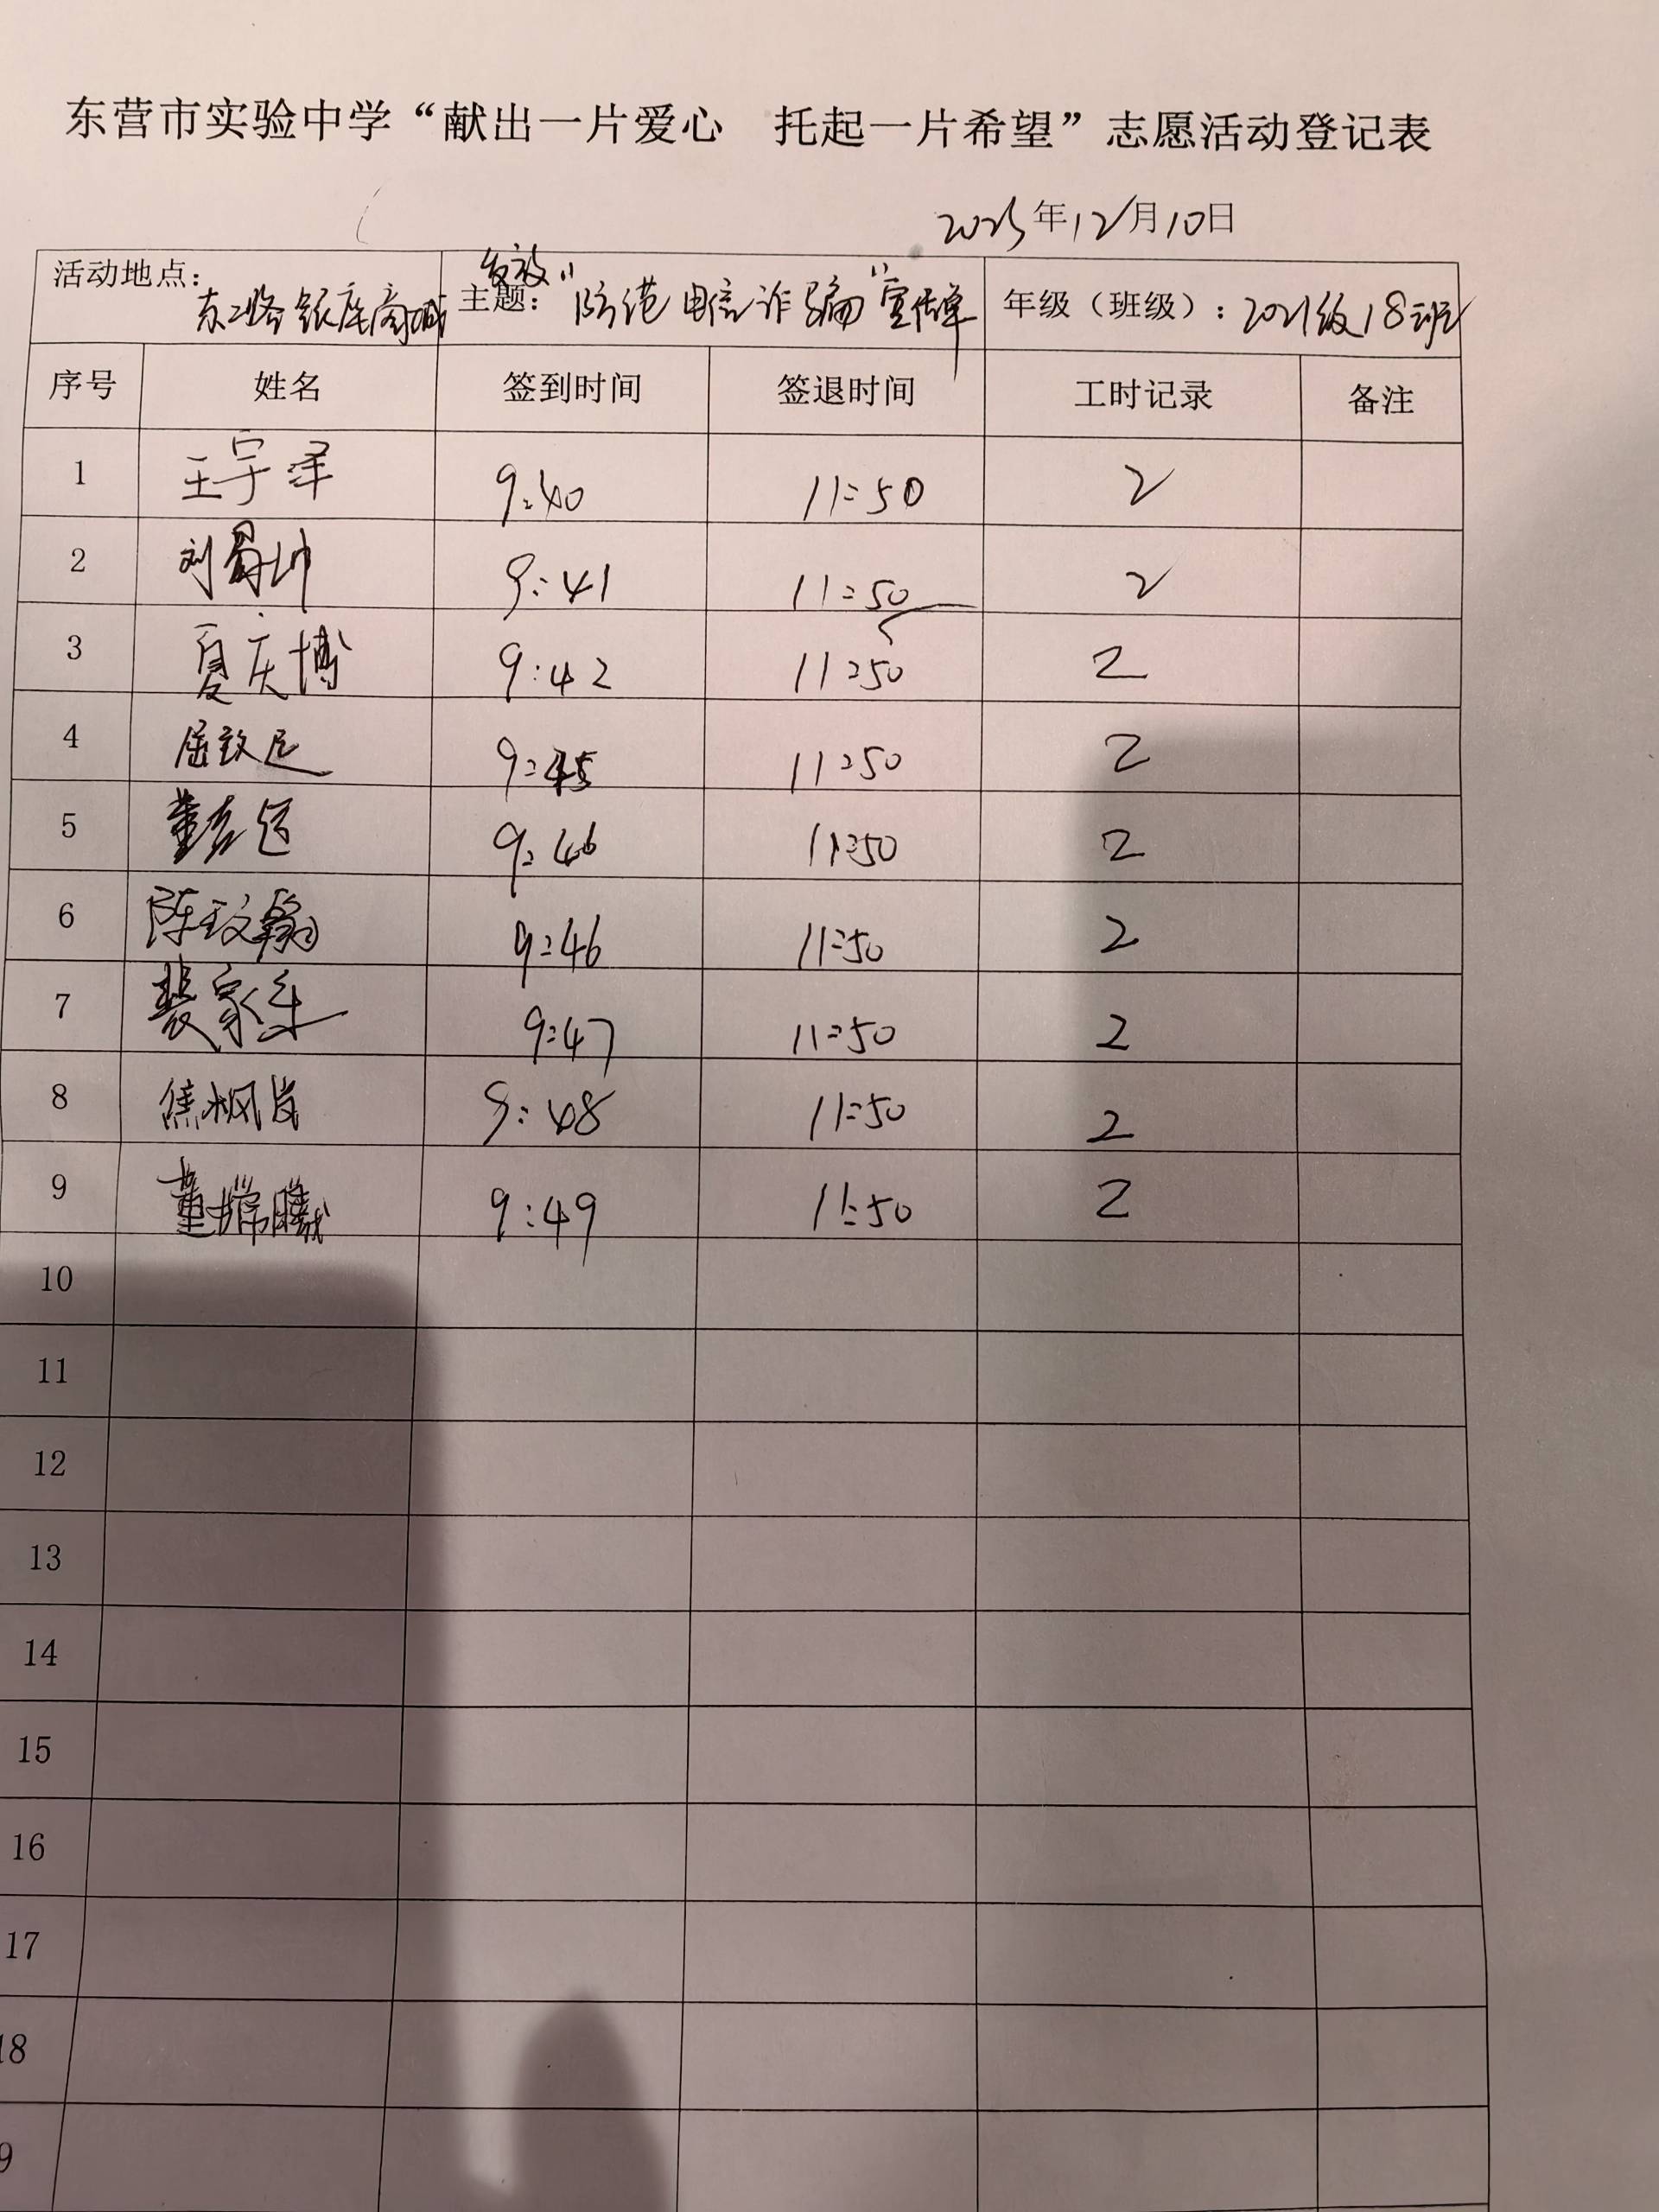 东营市实验中学“献出一片爱心 托起一片希望”志愿活动登记表
2023年12月10日
活动地点：东二路银座商城 主题：发放“防范电信诈骗”宣传单 年级（班级）：2021级18班
序号 姓名 签到时间 签退时间 工时记录 备注
1 王宇泽 9:40 11:50 2
2 刘 9:41 11:50 2
3 夏庆博 9:42 11:50 2
4 屈致 9:45 11:50 2
5 董 9:46 11:50 2
6 陈玟翰 9:46 11:50 2
7 裴家乐 9:47 11:50 2
8 焦枫岚 9:48 11:50 2
9 董 曦 9:49 11:50 2
10
11
12
13
14
15
16
17
18
9